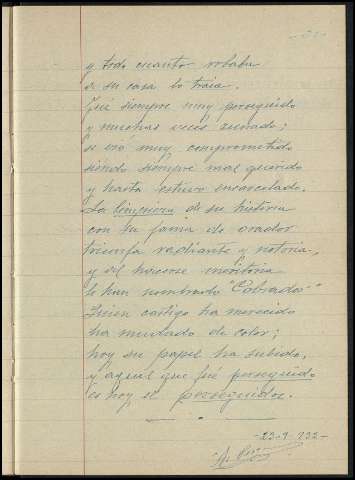 y todo cuanto robaba
a su casa lo traía.
Fué siempre muy perseguido
y muchas veces zurrado;
se vió muy comprometido
siendo siempre mal querido
y hasta estuvo encarcelado.
La de su historia
con su fama de orador
triunfa radiante y notoria,
y al hacerse meritoria
le han nombrado "Cobrador"
Quien castigo ha merecido
ha mudado de color;
hoy su papel ha subido,
y aquel que fué perseguido
es hoy el perseguidor.
-23-9-932-